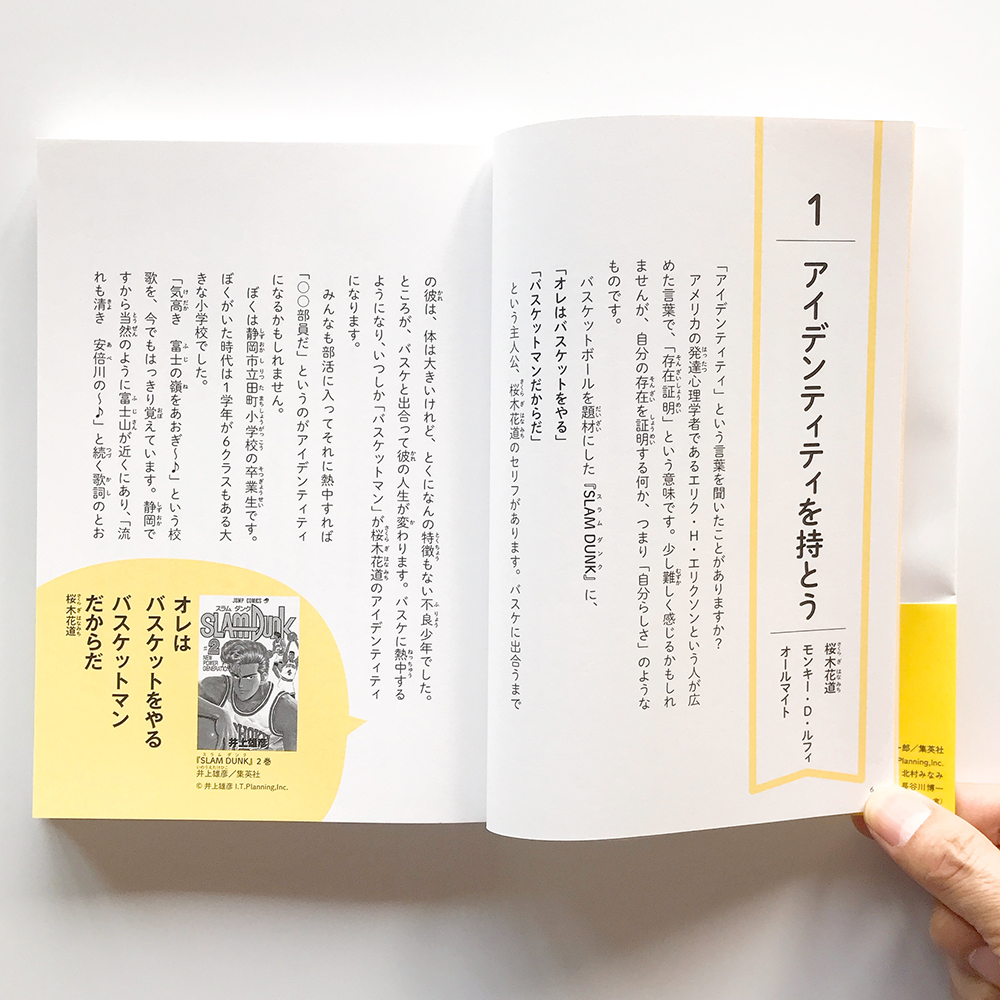 1
アイデンティティを持とう
桜木花道
モンキー・D・ルフィ
オールマイト
「アイデンティティ」という言葉を聞いたことがありますか？
アメリカの発達心理学者であるエリク・H・エリクソンという人が広
めた言葉で、「存在証明」という意味です。少し難しく感じるかもしれ
ませんが、自分の存在を証明する何か、つまり「自分らしさ」のような
ものです。
バスケットボールを題材にした『SLAM DUNK』に、
「オレはバスケットをやる」
「バスケットマンだからだ」
という主人公、桜木花道のセリフがあります。バスケに出合うまで
6
の彼は、体は大きいけれど、とくになんの特徴もない不良少年でした。
ところが、バスケと出合って彼の人生が変わります。バスケに熱中する
ようになり、いつしか「バスケットマン」が桜木花道のアイデンティティ
になります。
みんなも部活に入ってそれに熱中すれば
「○○部員だ」というのがアイデンティティ
になるかもしれません。
ぼくは静岡市立田町小学校の卒業生です。
ぼくがいた時代は1学年が6クラスもある大
きな小学校でした。
「気高き　富士の嶺をあおぎ〜♪」という校
歌を、今でもはっきり覚えています。静岡で
すから当然のように富士山が近くにあり、「流
れも清き　安倍川の〜♪」と続く歌詞のとお
JUMP COMICS
スラムダンク
SLAM DUNK
#2
NEW POWER GENERATION
井上雄彦
『SLAM DUNK』2巻
井上雄彦／集英社
© 井上雄彦 I.T.Planning,Inc.
オレは
バスケットをやる
バスケットマン
だからだ
桜木花道
一郎／集英社
Planning,Inc.
北村みなみ
長谷川博一